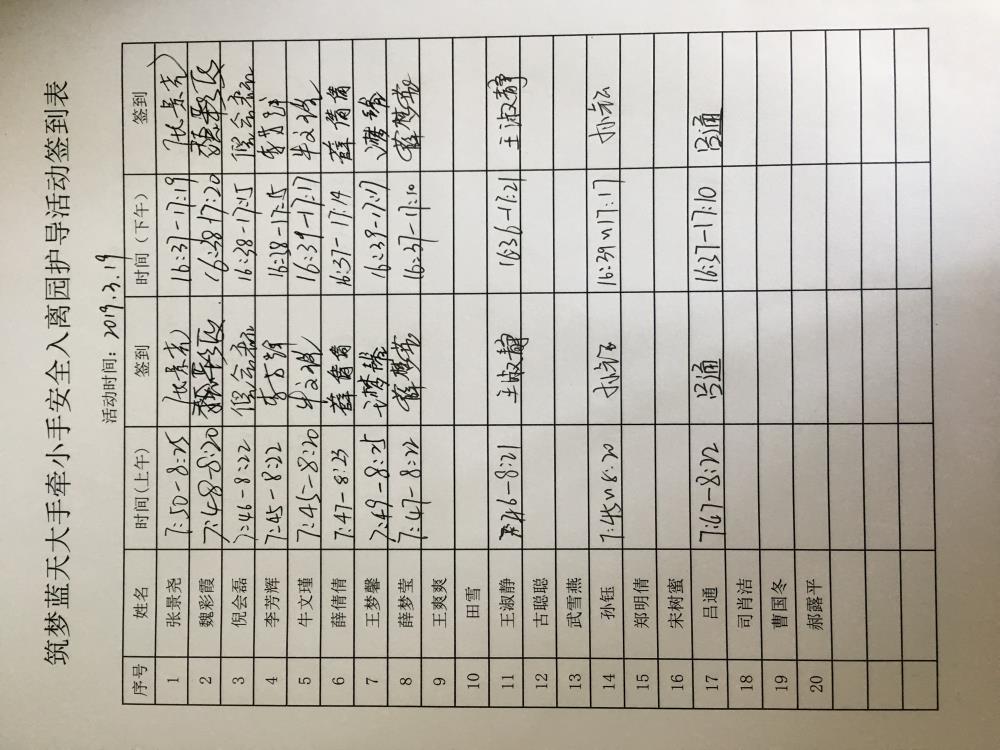 筑梦蓝天大手牵小手安全入离园护导活动签到表
活动时间：2019.3.19
序号 姓名 时间（上午） 签到 时间（下午） 签到
1 张景尧 7:50-8:25 张景尧 16:37-17:19 张景尧
2 魏彩霞 7:48-8:20 魏彩霞 16:38-17:20 魏彩霞
3 倪会磊 7:46-8:22 倪会磊 16:38-17:15 倪会磊
4 李芳辉 7:45-8:22 李芳辉 16:38-17:15 李芳辉
5 牛文瑾 7:45-8:20 牛文瑾 16:39-17:17 牛文瑾
6 薛倩倩 7:47-8:23 薛倩倩 16:37-17:14 薛倩倩
7 王梦馨 7:49-8:25 16:39-17:17
8 薛梦莹 7:47-8:22 薛梦莹 16:37-17:10 薛梦莹
9 王爽爽
10 田雪
11 王淑静 7:46-8:21 王淑静 16:36-17:21 王淑静
12 古聪聪
13 武雪燕
14 孙钰 7:45~8:20 孙钰 16:39~17:17 孙钰
15 郑明倩
16 宋树蜜
17 吕通 7:47-8:22 吕通 16:37-17:10 吕通
18 司肖洁
19 曹国冬
20 郝露平